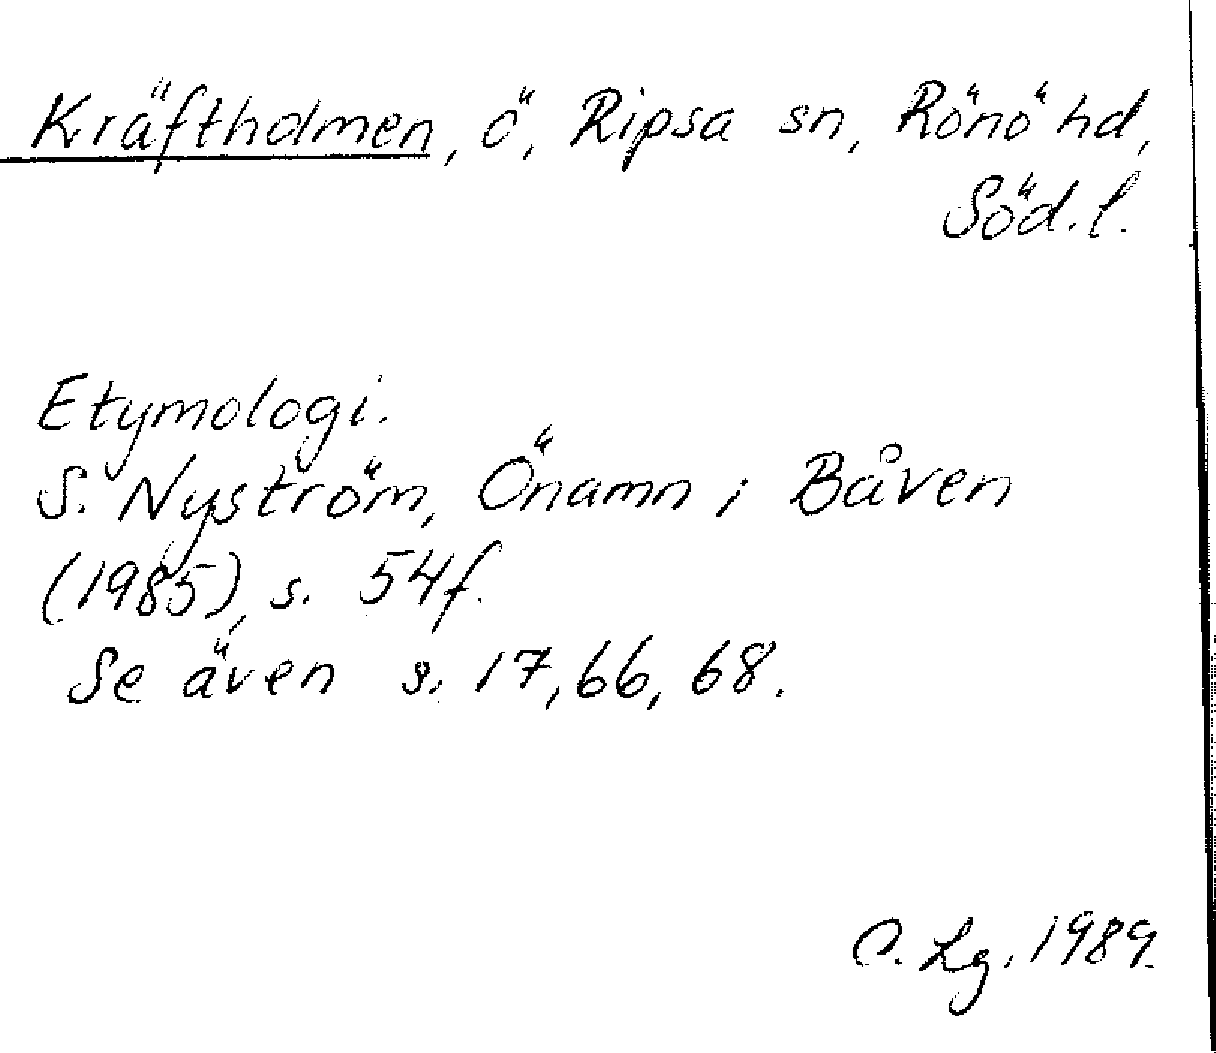 Kräftholmen, ö, Ripsa sn, Rönö hd,
Söd.l.
Etymologi.
S. Nyström, Önamn i Båven
(1985), s. 54f.
Se även s. 17, 66, 68.
O. Lg. 1989.